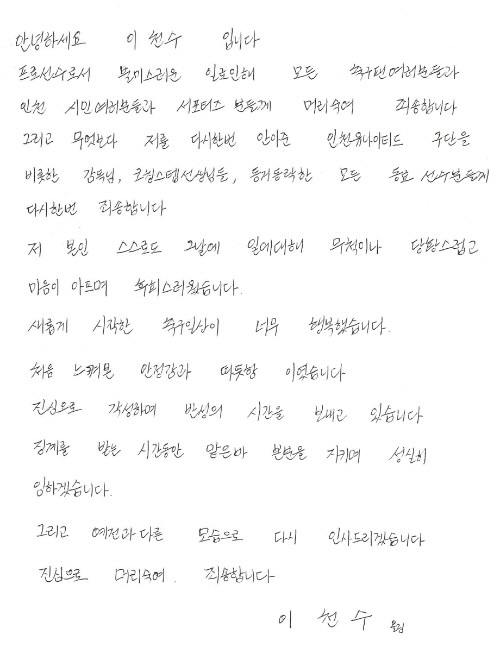 안녕하세요 이천수 입니다
프로선수로서 불미스러운 일로인해 모든 축구팬여러분들과
인천 시민여러분들과 서포터즈 분들께 머리숙여 죄송합니다
그리고 무엇보다 저를 다시한번 안아준 인천유나이티드 구단을
비롯한 감독님, 코칭스텝선생님들, 동거동락한 모든 동료 선수분들께
다시한번 죄송합니다
저 본인 스스로도 그날에 일에대해 무척이나 당황스럽고
마음이 아프며 후회스러웠습니다.
새롭게 시작한 축구인생이 너무 행복했습니다.
처음 느껴본 안정감과 따듯함 이었습니다
진심으로 각성하며 반성의 시간을 보내고 있습니다
징계를 받는 시간동안 맡은바 본분을 지키며 성실히
임하겠습니다.
그리고 예전과다른 모습으로 다시 인사드리겠습니다
진심으로 머리숙여. 죄송합니다
이 천 수 올림